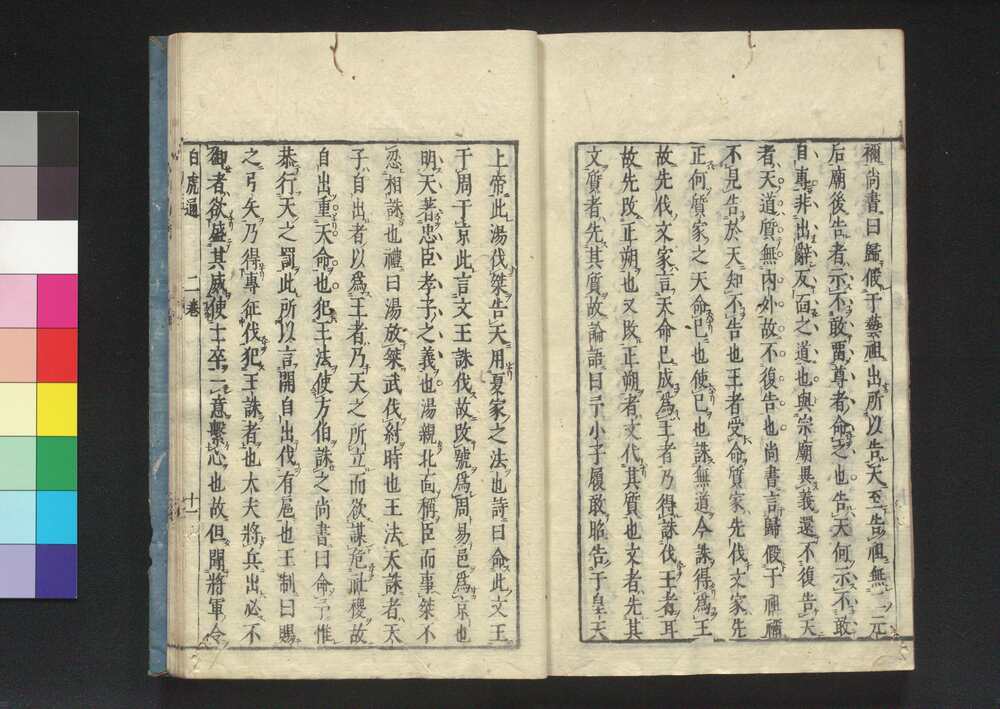 禰尚書曰歸假于藝祖出所以告天至告祖無二元
后廟後告者示不敢畱尊者命之也告天何示不敢
自專非出辭反面之道也與宗廟異義還不復告天
者天道質無內外故不復告也尚書言歸假于祖禰
不見告於天知不告也王者受命質家先伐文家先
正何質家之天命已也使已也誅無道今誅得爲王
故先伐文家言天命已成爲王者乃得誅伐王者耳
故先改正朔也又改正朔者文代其質也文者先其
文質者先其質故論語曰予小子履敢昭告于皇天
上帝此湯伐桀告天用夏家之法也詩曰命此文王
于周于京此言文王誅伐故改號爲周易邑爲京也
明天著忠臣孝子之義也湯親北面稱臣而事桀不
忍相誅也禮曰湯放桀武伐紂時也王法天誅者天
子自出者以爲王者乃天之所立而欲謀危社稷故
自出重天命也犯王法使方伯誅之尚書曰命予惟
恭行天之罰此所以言開自出伐有扈也王制曰賜
之弓矢乃得專征伐犯王誅者也大夫將兵出必不
御者欲盛其威使士卒一意繫心也故但聞將軍令
白虎通 二卷 十一